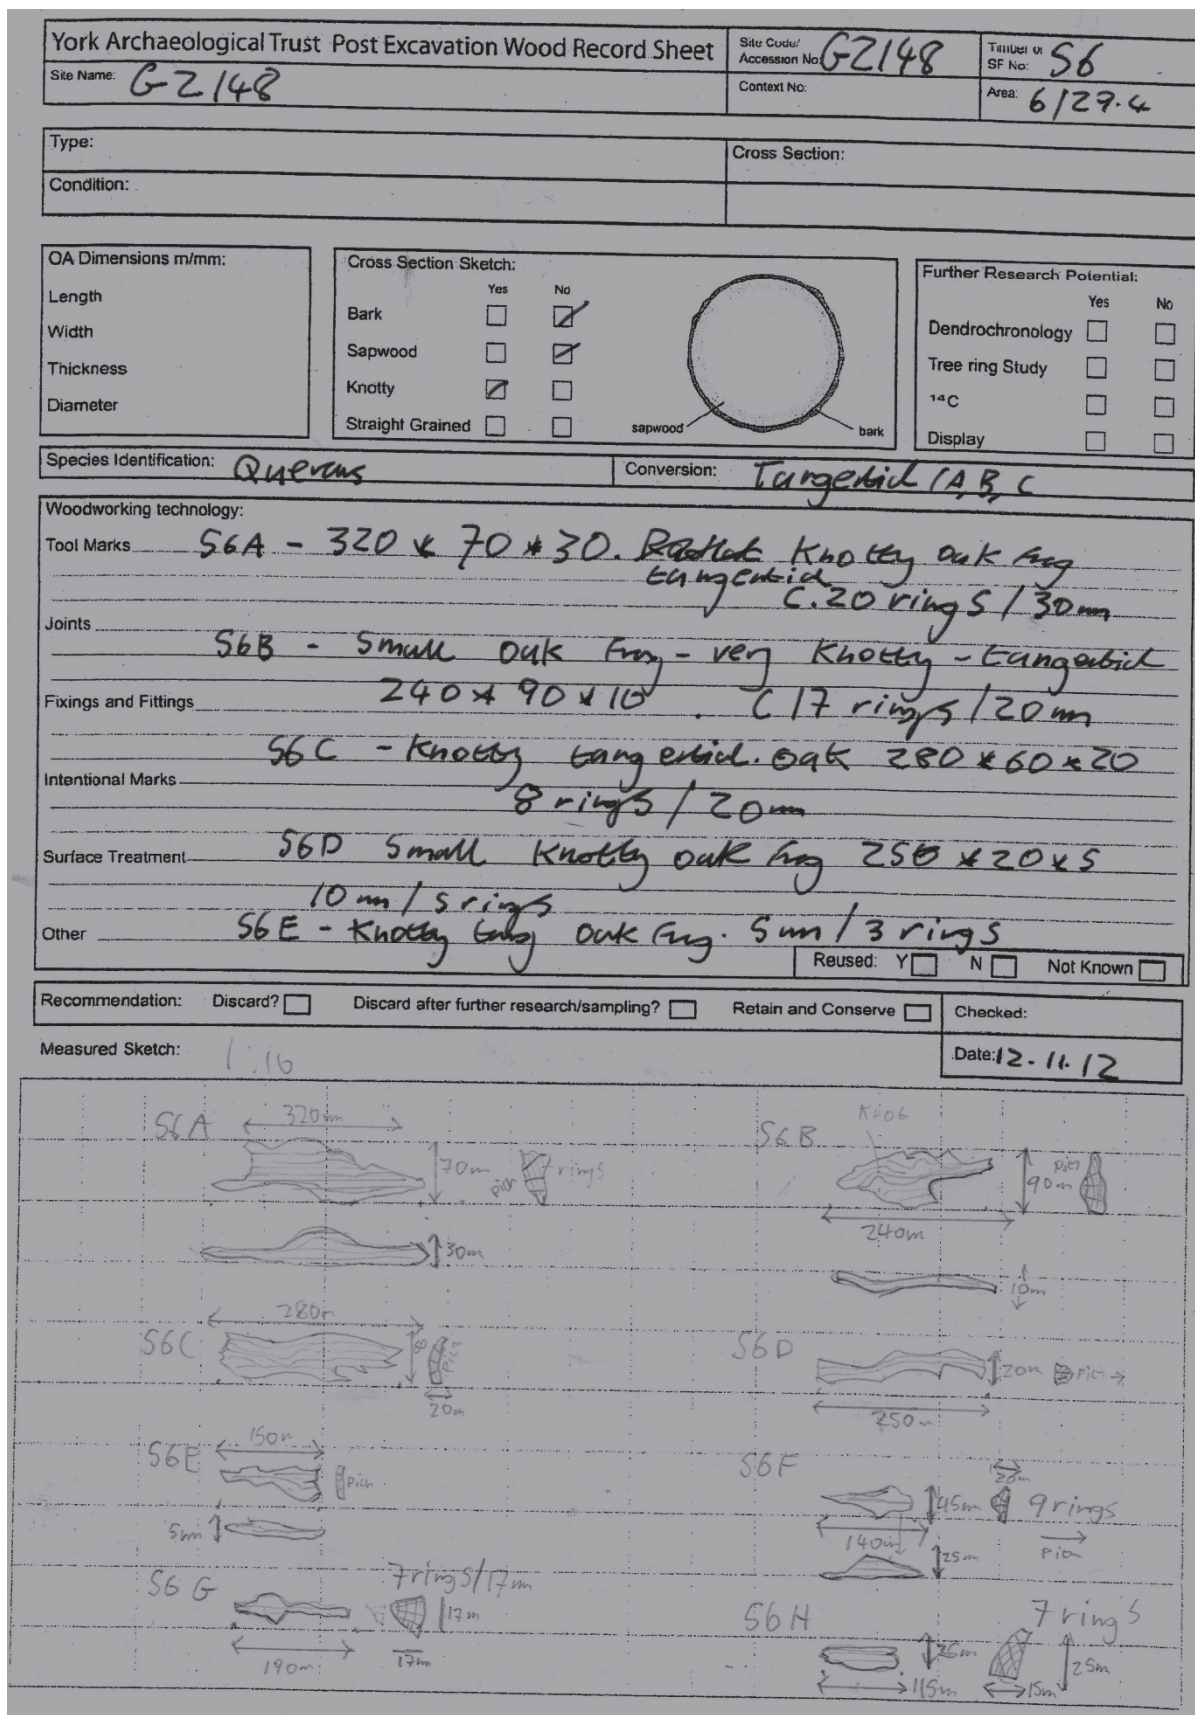 York Archaeological Trust Post Excavation Wood Record Sheet
Site Code/ Accession No: GZ148
Timber or SF No: S6
Site Name: GZ148
Context No:
Area: 6/27.4
Type:
Cross Section:
Condition:
OA Dimensions m/mm:
Length
Width
Thickness
Diameter
Cross Section Sketch:
Yes No
Bark
Sapwood
Knotty
Straight Grained
sapwood
bark
Further Research Potential:
Yes No
Dendrochronology
Tree ring Study
14C
Display
Species Identification: Quercus
Conversion: Tangential (A, B, C
Woodworking technology:
Tool Marks S6A - 320 x 70 x 30. Knotty oak frag
tangential
C.20 rings / 30mm
Joints
S6B - Small oak frag - very Knotty - tangential
Fixings and Fittings 240 x 90 x 10 . C 17 rings / 20mm
S6C - Knotty tangential. oak 280 x 60 x 20
Intentional Marks
8 rings / 20mm
Surface Treatment S6D Small Knotty oak frag 250 x 20 x 5
10mm / 5 rings
Other S6E - Knotty tang oak frag. 5mm / 3 rings
Reused: Y N Not Known
Recommendation: Discard? Discard after further research/sampling? Retain and Conserve
Checked:
Measured Sketch: 1:10
Date: 12.11.12
S6A 320mm 70m pith 7 rings
30m
S6B Knot 90m pith
240m
10m
S6C 280m pith
20m
S6D 20m pith
250m
S6E 150m pith
5mm
S6F 45m 20m 9 rings
140m pith
25m
S6G 7 rings/17mm
17m
190m 17m
S6H 7 rings
25m 25m
115m 15m